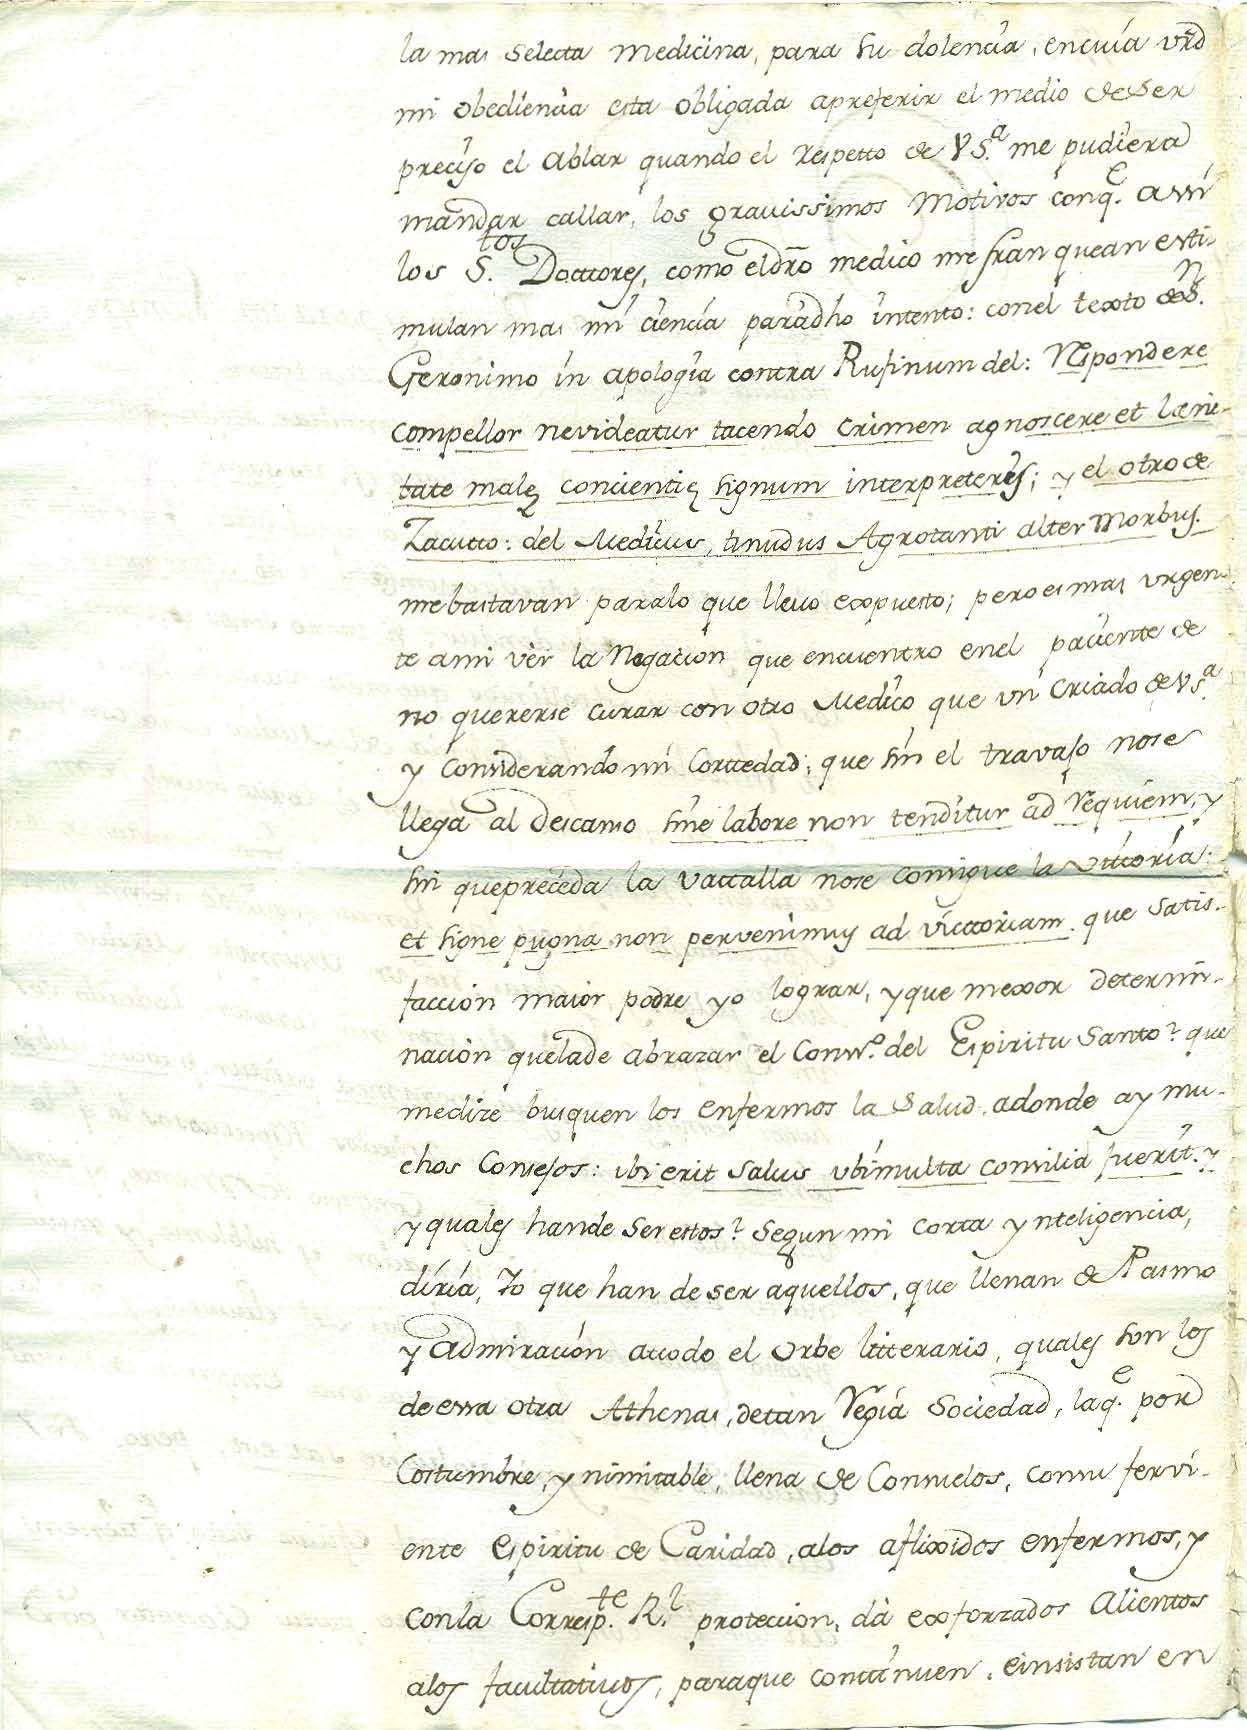 la mas selecta medicina, para su dolencia, en cuia vrđ
mi obediencia esta obligada apreferir el medio deser
preciso el ablar quando el respetto de VS.ª me pudiera
mandar callar, los gravissimos motivos conq.e ami
los S.tos Doctores, como eldro medico me fran quean esti-
mulan mas mi ciencia paradho intento: conel texto deSn.
Geronimo in apologia contra Rufinum del: Respondere
compellor nevideatur tacendo crimen agnoscere et leni-
tate malę concientię signum interpreteris; y el otro de
Zacutto: del Medicus, timidus Agrotanti alter Morbus.
mebastavan paralo que llevo expuesto; pero es mas urgen-
te ami vèr la Negacion que encuentro enel paciente de
no quererse curar con otro Medico que un Criado de VS.ª
y considerando mi Cortedad, que sin el travajo nose
llega al descanso sine labore non tenditur ad requiem, y
sin quepreceda la vattalla nose consigue la victtoria.
et signe pugna non pervenimus ad victtoriam. que satis-
faccion maior podre yo lograr, yque mexor determi-
nacion quelade abrazar el Consº. del Espiritu Santo? que
medize busquen los enfermos la salud, adonde ay mu-
chos Consejos: ibi erit salus ubimulta consilia fuerit. y
y quales hande ser estos? segun mi corta ynteligencia,
diria, Yo que han de ser aquellos, que llenan de Pasmo
y admiracion atodo el orbe litterario, quales son los
de essa otra Athenas, detan Regia Sociedad, laq.e por
Costumbre, ynimitable, llena de Consuelos, consu fervi-
ente Espiritu de Caridad, alos aflixidos enfermos, y
conla Corresp.te R.l proteccion, dà exforzados Alientos
alos facultativos, paraque continuen, einsistan en